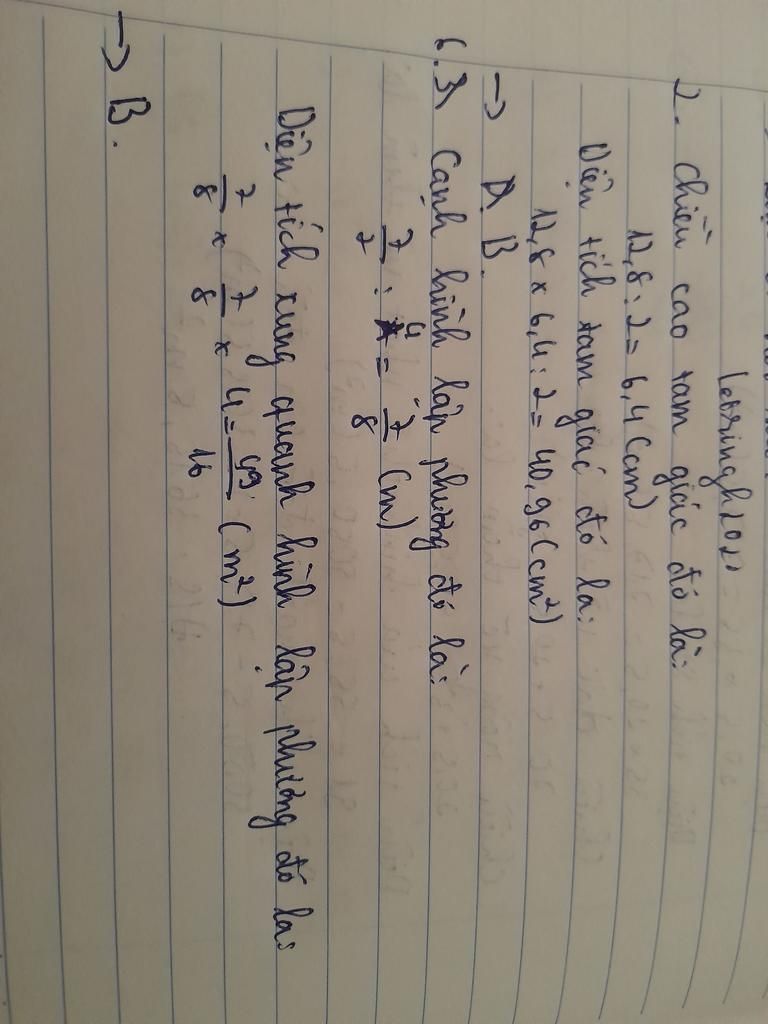 letringh2020
2. Chiều cao tam giác đó là:
12,8 : 2 = 6,4 (cm)
Diện tích tam giác đó là:
12,8 x 6,4 : 2 = 40,96 (cm²)
→ B.
6.3) Cạnh hình lập phương đó là:
7/2 : 4 = 7/8 (m)
Diện tích xung quanh hình lập phương đó là:
7/8 x 7/8 x 4 = 49/16 (m²)
→ B.